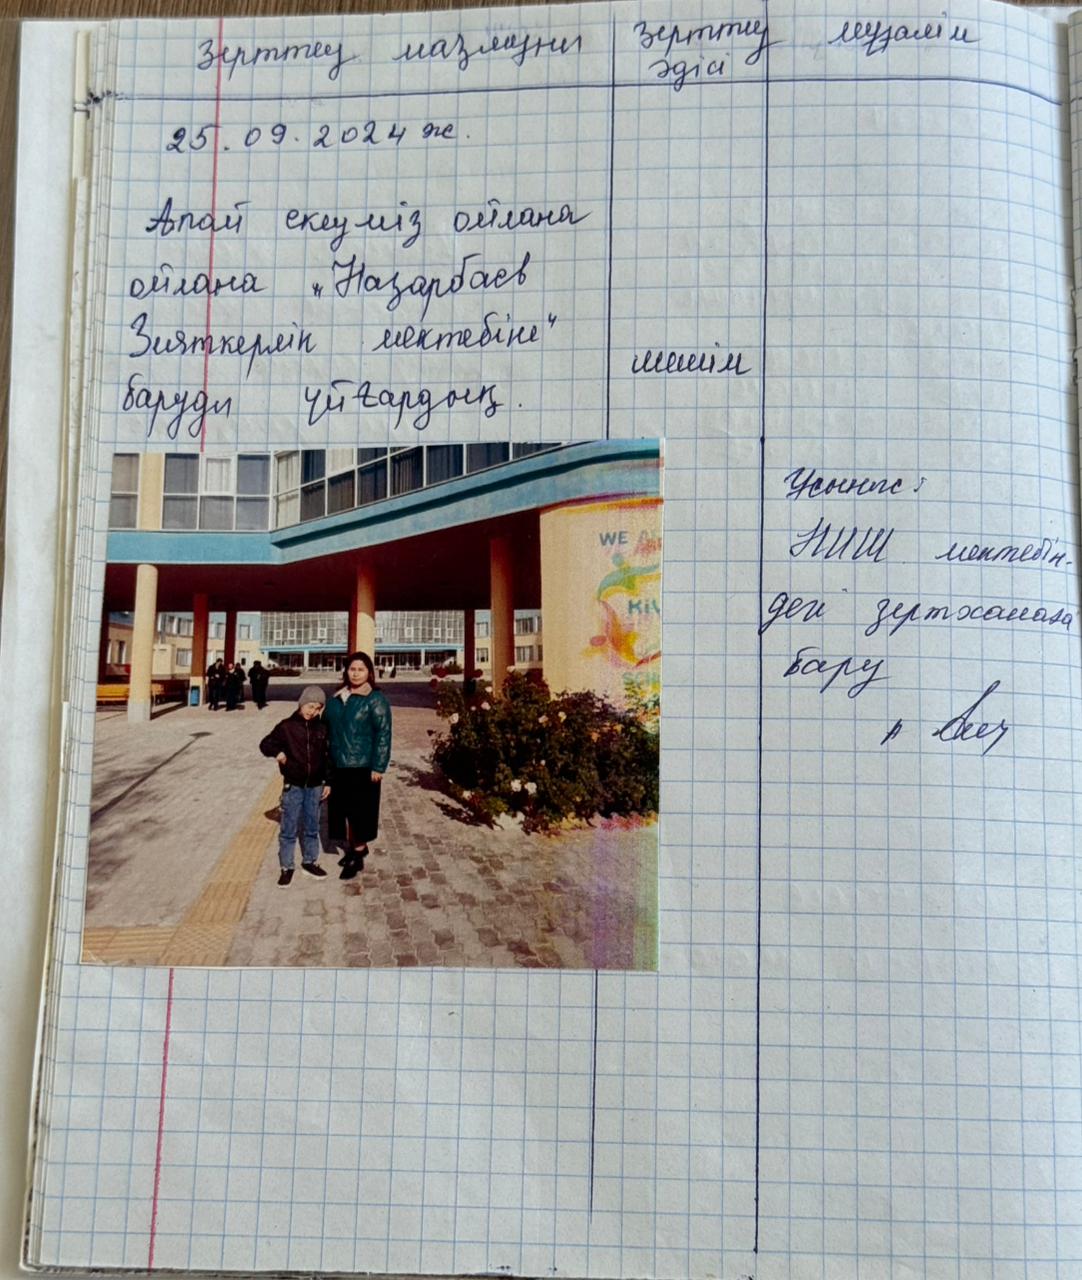 Зерттеу мазмұны
Зерттеу
әдісі
мұғалім
25.09.2024 ж.
Апай екеуміз ойлана
ойлана „Назарбаев
Зияткерлік мектебіне“
баруды ұйғардық.
шешім
WE
KIV
SCH
Ұсыныс:
НИШ мектебін-
дегі зертханаға
бару